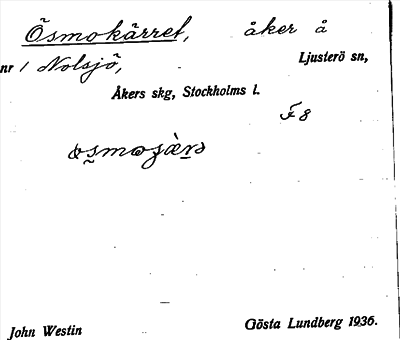 Ösmokärret, åker å
nr 1 Nolsjö, Ljusterö sn,
Åkers skg, Stockholms l.
F 8
John Westin Gösta Lundberg 1936.